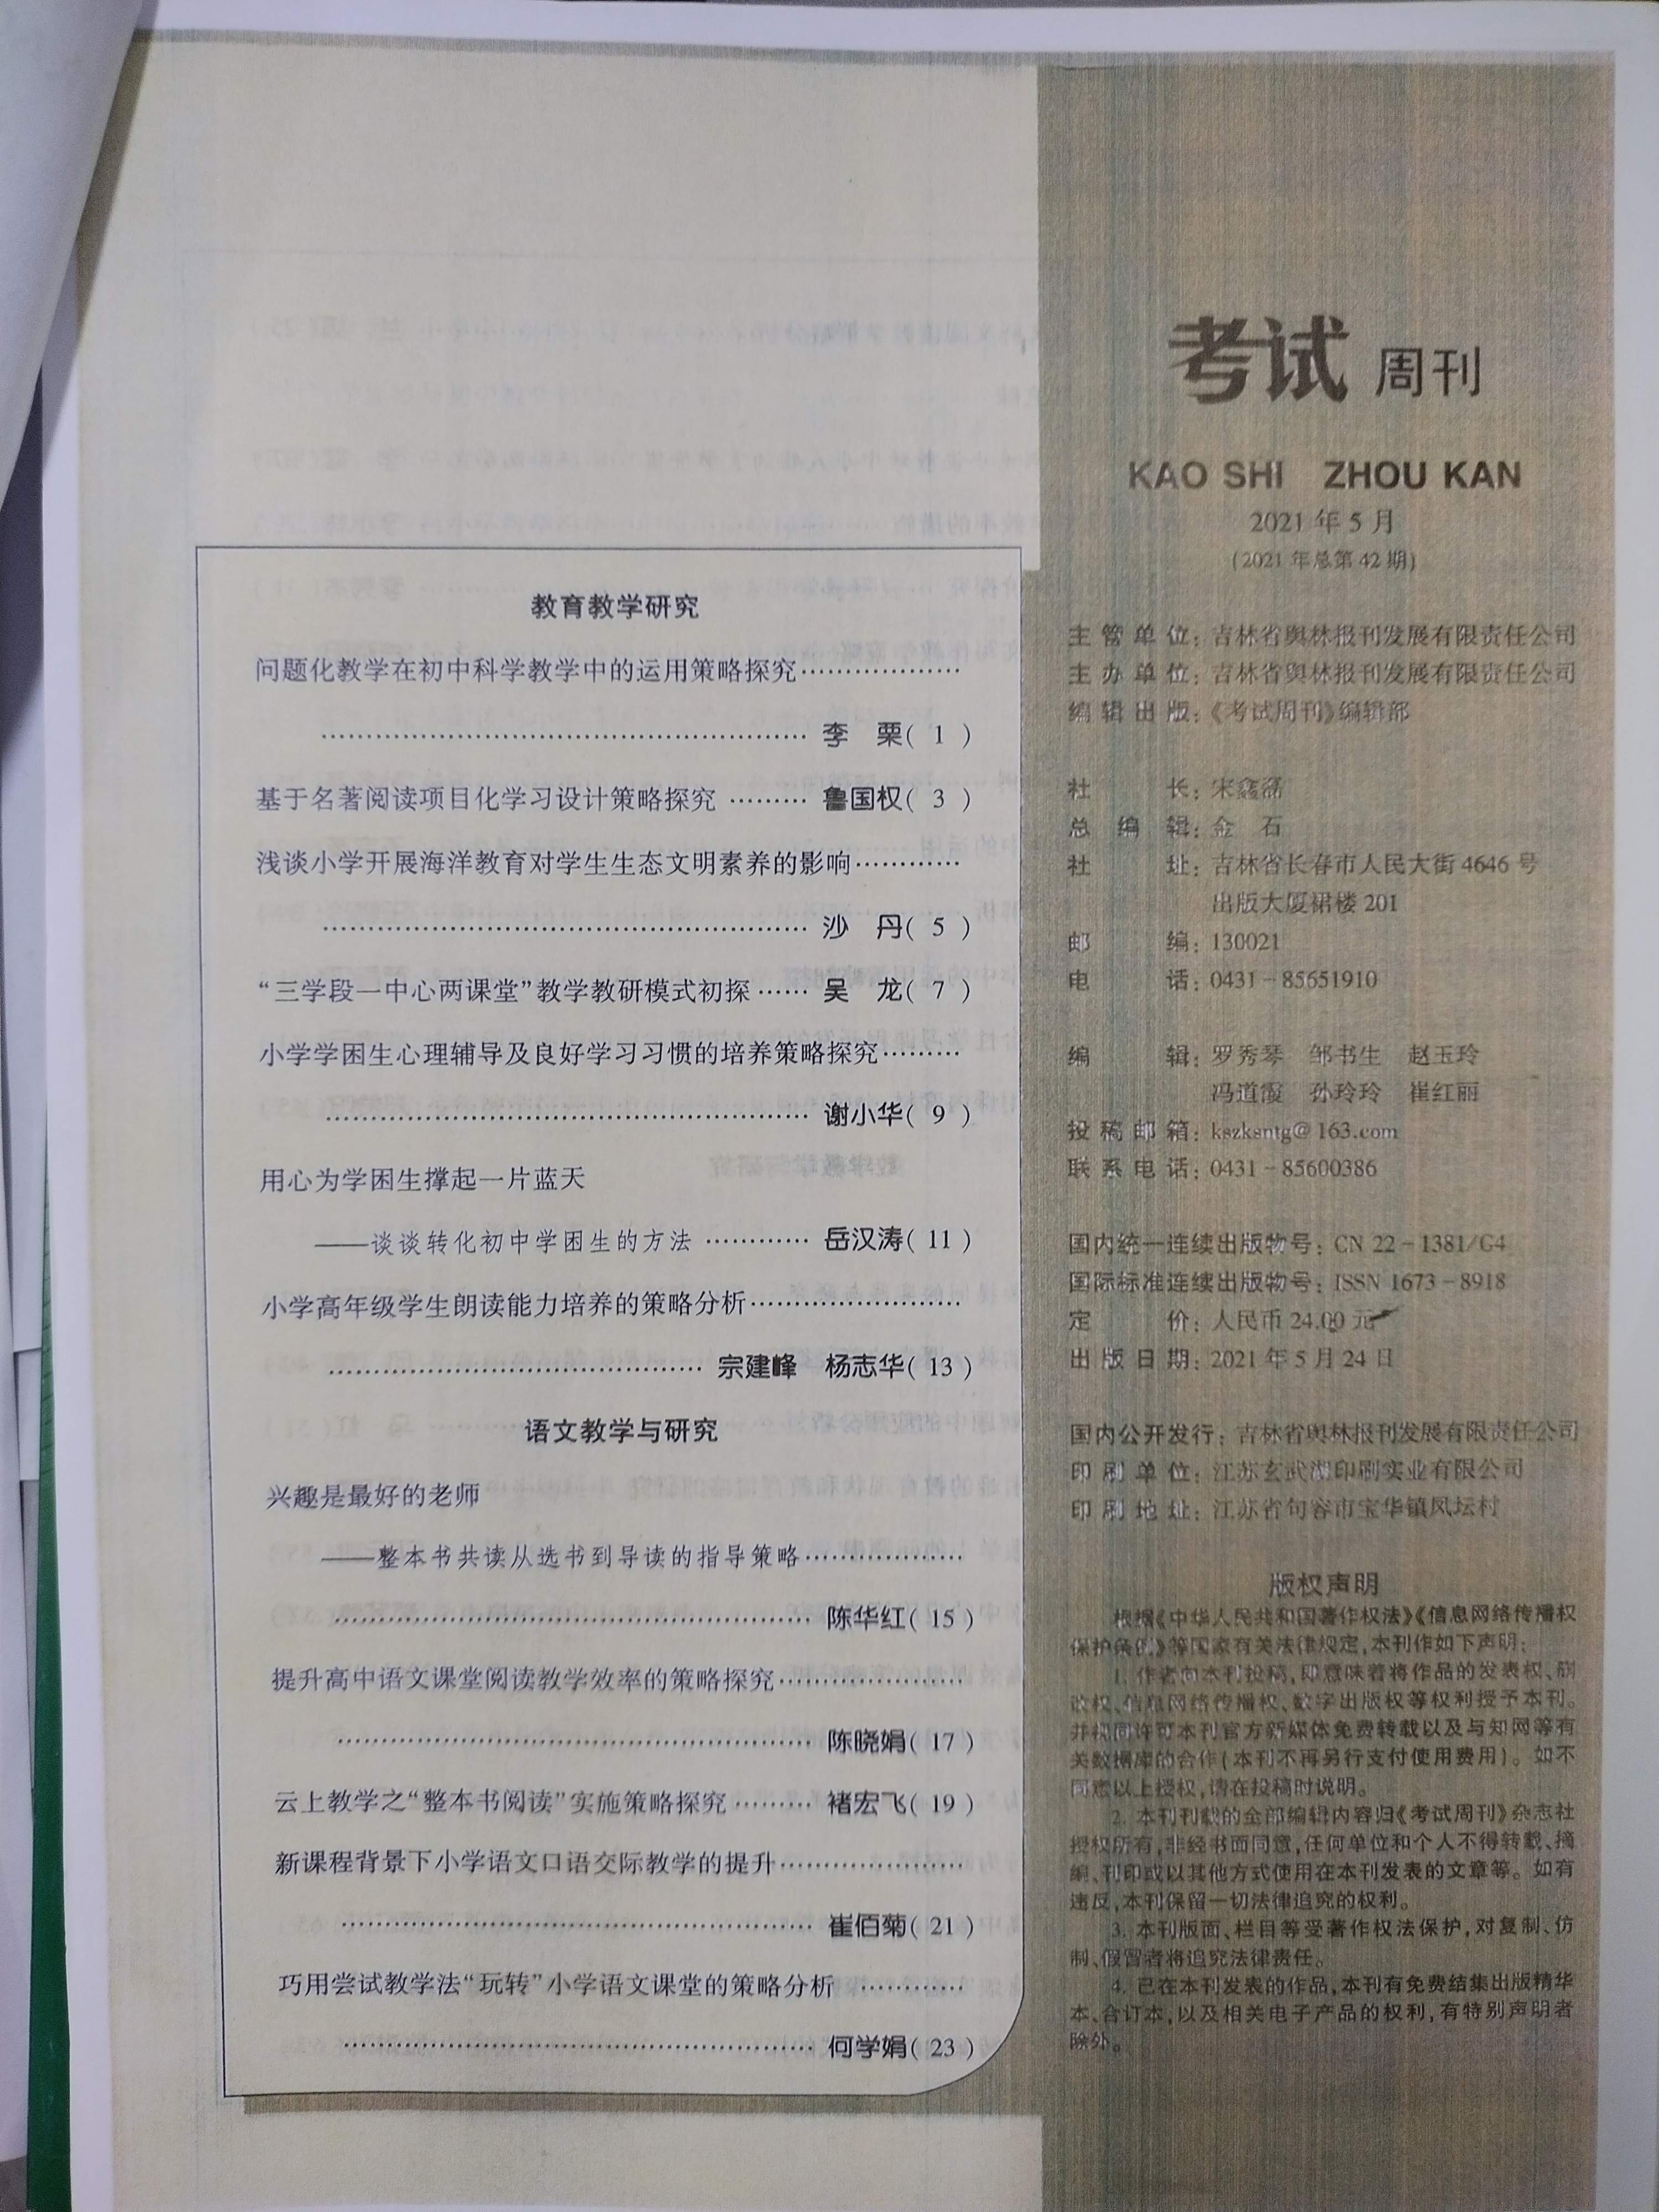 教育教学研究
问题化教学在初中科学教学中的运用策略探究··················
······················································ 李　栗( 1 )
基于名著阅读项目化学习设计策略探究 ········· 鲁国权( 3 )
浅谈小学开展海洋教育对学生生态文明素养的影响············
······················································ 沙　丹( 5 )
“三学段一中心两课堂”教学教研模式初探 ······ 吴　龙( 7 )
小学学困生心理辅导及良好学习习惯的培养策略探究·········
······················································ 谢小华( 9 )
用心为学困生撑起一片蓝天
——谈谈转化初中学困生的方法 ············ 岳汉涛( 11 )
小学高年级学生朗读能力培养的策略分析························
·········································· 宗建峰　杨志华( 13 )
语文教学与研究
兴趣是最好的老师
——整本书共读从选书到导读的指导策略··················
······················································ 陈华红( 15 )
提升高中语文课堂阅读教学效率的策略探究·····················
······················································ 陈晓娟( 17 )
云上教学之“整本书阅读”实施策略探究 ········· 褚宏飞( 19 )
新课程背景下小学语文口语交际教学的提升·····················
······················································ 崔佰菊( 21 )
巧用尝试教学法“玩转”小学语文课堂的策略分析 ············
······················································ 何学娟( 23 )
考试 周刊
KAO SHI ZHOU KAN
2021 年 5 月
(2021 年总第 42 期)
主管单位：吉林省舆林报刊发展有限责任公司
主办单位：吉林省舆林报刊发展有限责任公司
编辑出版：《考试周刊》编辑部
社　　长：宋鑫磊
总 编 辑：金　石
社　　址：吉林省长春市人民大街 4646 号
出版大厦裙楼 201
邮　　编：130021
电　　话：0431－85651910
编　　辑：罗秀琴　邹书生　赵玉玲
冯道霞　孙玲玲　崔红丽
投稿邮箱：kszksntg@163.com
联系电话：0431－85600386
国内统一连续出版物号：CN 22－1381/G4
国际标准连续出版物号：ISSN 1673－8918
定　　价：人民币 24.00 元
出版日期：2021 年 5 月 24 日
国内公开发行：吉林省舆林报刊发展有限责任公司
印刷单位：江苏玄武湖印刷实业有限公司
印刷地址：江苏省句容市宝华镇凤坛村
版权声明
根据《中华人民共和国著作权法》《信息网络传播权
保护条例》等国家有关法律规定,本刊作如下声明：
1. 作者向本刊投稿,即意味着将作品的发表权、删
改权、信息网络传播权、数字出版权等权利授予本刊。
并视同许可本刊官方新媒体免费转载以及与知网等有
关数据库的合作(本刊不再另行支付使用费用)。如不
同意以上授权,请在投稿时说明。
2. 本刊刊载的全部编辑内容归《考试周刊》杂志社
授权所有,非经书面同意,任何单位和个人不得转载、摘
编、刊印或以其他方式使用在本刊发表的文章等。如有
违反,本刊保留一切法律追究的权利。
3. 本刊版面、栏目等受著作权法保护,对复制、仿
制、假冒者将追究法律责任。
4. 已在本刊发表的作品,本刊有免费结集出版精华
本、合订本,以及相关电子产品的权利,有特别声明者
除外。